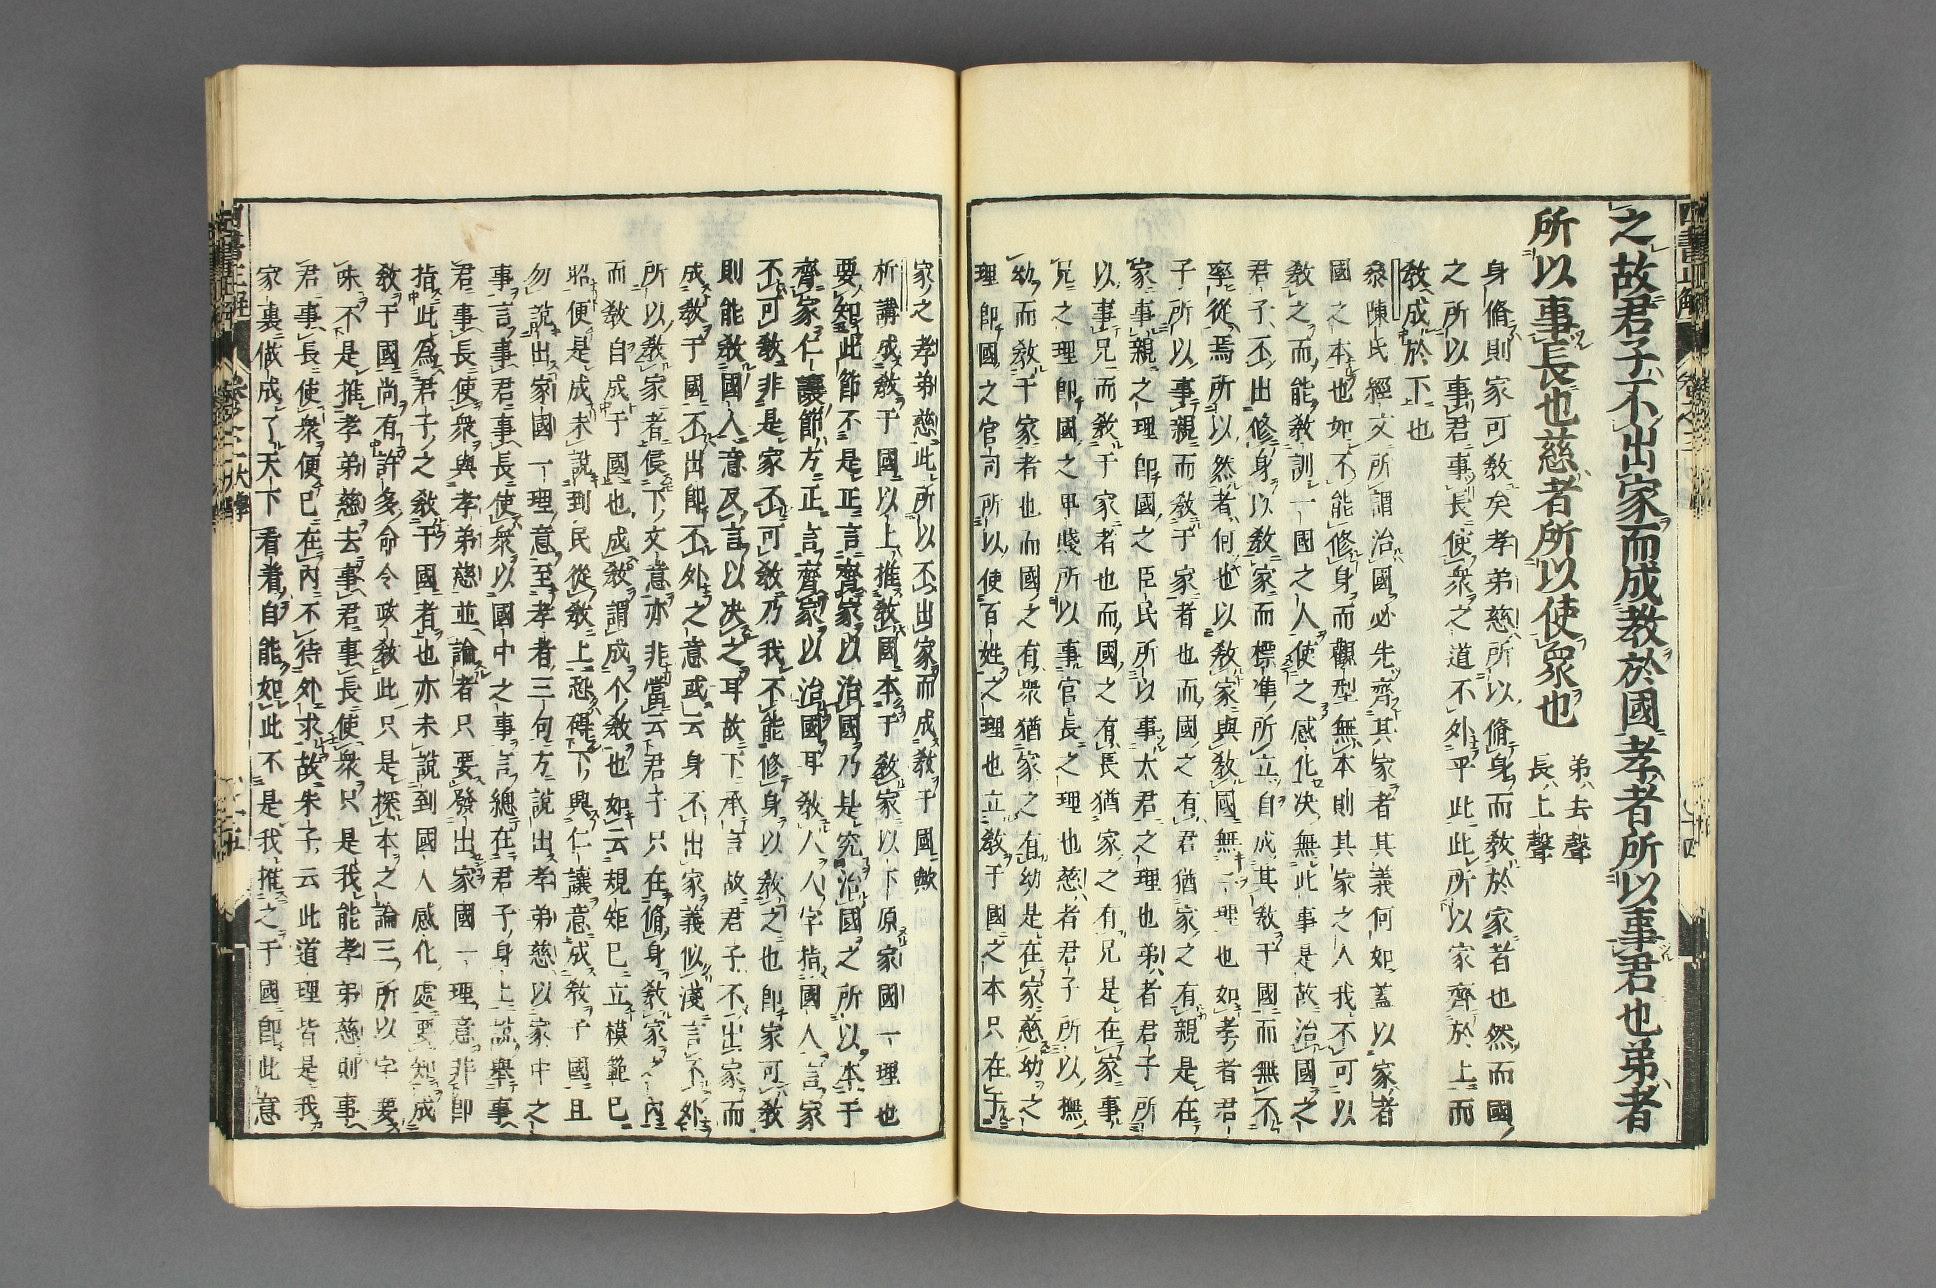 之故君子不出家而成教於國孝者所以事君也弟者
所以事長也慈者所以使衆也
弟去聲
長上聲
身脩則家可教矣孝弟慈所以脩身而教於家者也然而國
之所以事君事長使衆之道不外乎此此所以家齊於上而
教成於下也
叅陳氏經文所謂治國必先齊其家者其義何如蓋以家者
國之本也如不能修身而觀型無本則其家之人我不可以
教之而能教訓一國之人使之感化决無此事是故治國之
君子不出修身以教家而標準所立自成其教于國而無不
率從焉所以然者何也以教家與教國無二理也如孝者君
子所以事親而教于家者也而國之有君猶家之有親是在
家事親之理卽國之臣民所以事太君之理也弟者君子所
以事兄而教于家者也而國之有長猶家之有兄是在家事
兄之理卽國之甲賤所以事官長之理也慈者君子所以撫
幼而教于家者也而國之有衆猶家之有幼是在家慈幼之
理卽國之官司所以使百姓之理也立教于國之本只在于
家之孝弟慈此所以不出家而成教于國歟
析講成教于國以上推教國本于教家以下原家國一理也
要知此節不是正言齊家以治國乃是究治國之所以本于
齊家仁讓節方正言齊家以治國耳教人人字指國人言家
不可教非是家不可教乃我不能修身以教之也卽家可教
則能教國人意反言以决之耳故下承言故君子不出家而
成教于國不出卽不外之意或云身不出家義似淺言不外
所以教家者侵下文意亦非當云君子只在脩身教家內
而教自成于國也成教謂成个教也如云規矩已立模範已
昭便是成未說到民從教上恐碍下興仁讓意成教于國且
勿說出家國一理意至孝者三句方說出孝弟慈以家中之
事言事君事長使衆以國中之事言總在君子身上說舉事
君事長使衆與孝弟慈並論者只要發出家國一理意非卽
指此為君子之教于國者也亦未說到國人感化處要知成
教于國尚有許多命令政教此只是探本之論三所以字要
味不是推孝弟慈去事君事長使衆只是我能孝弟慈則事
君事長使衆便已在內不待外求故朱子云此道理皆是我
家裏做成了天下看着自能如此不是我推之于國卽此意